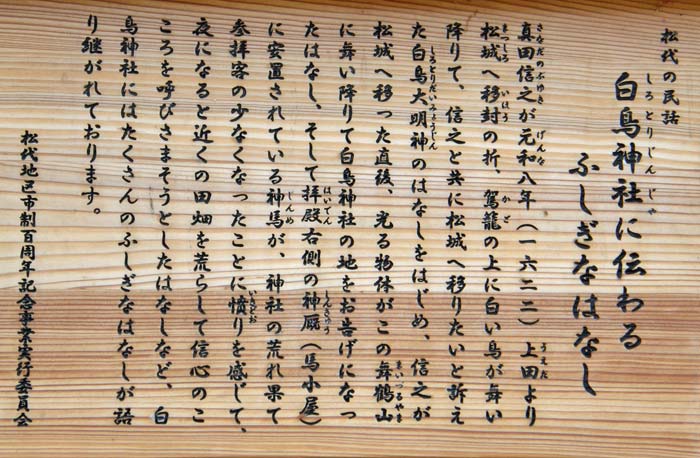 松代の民話
白鳥神社に伝わる
ふしぎなはなし
真田信之が元和八年（一六二二）上田より
松城へ移封の折、駕籠の上に白い鳥が舞い
降りて、信之と共に松城へ移りたいと訴え
た白鳥大明神のはなしをはじめ、信之が
松城へ移った直後、光る物体がこの舞鶴山
に舞い降りて白鳥神社の地をお告げになっ
たはなし、そして拝殿右側の神厩（馬小屋）
に安置されている神馬が、神社の荒れ果て
参拝客の少なくなったことに憤りを感じて、
夜になると近くの田畑を荒らして信心のこ
ころを呼びさまそうとしたはなしなど、白
鳥神社にはたくさんのふしぎなはなしが語
り継がれております。
松代地区市制百周年記念事業実行委員会